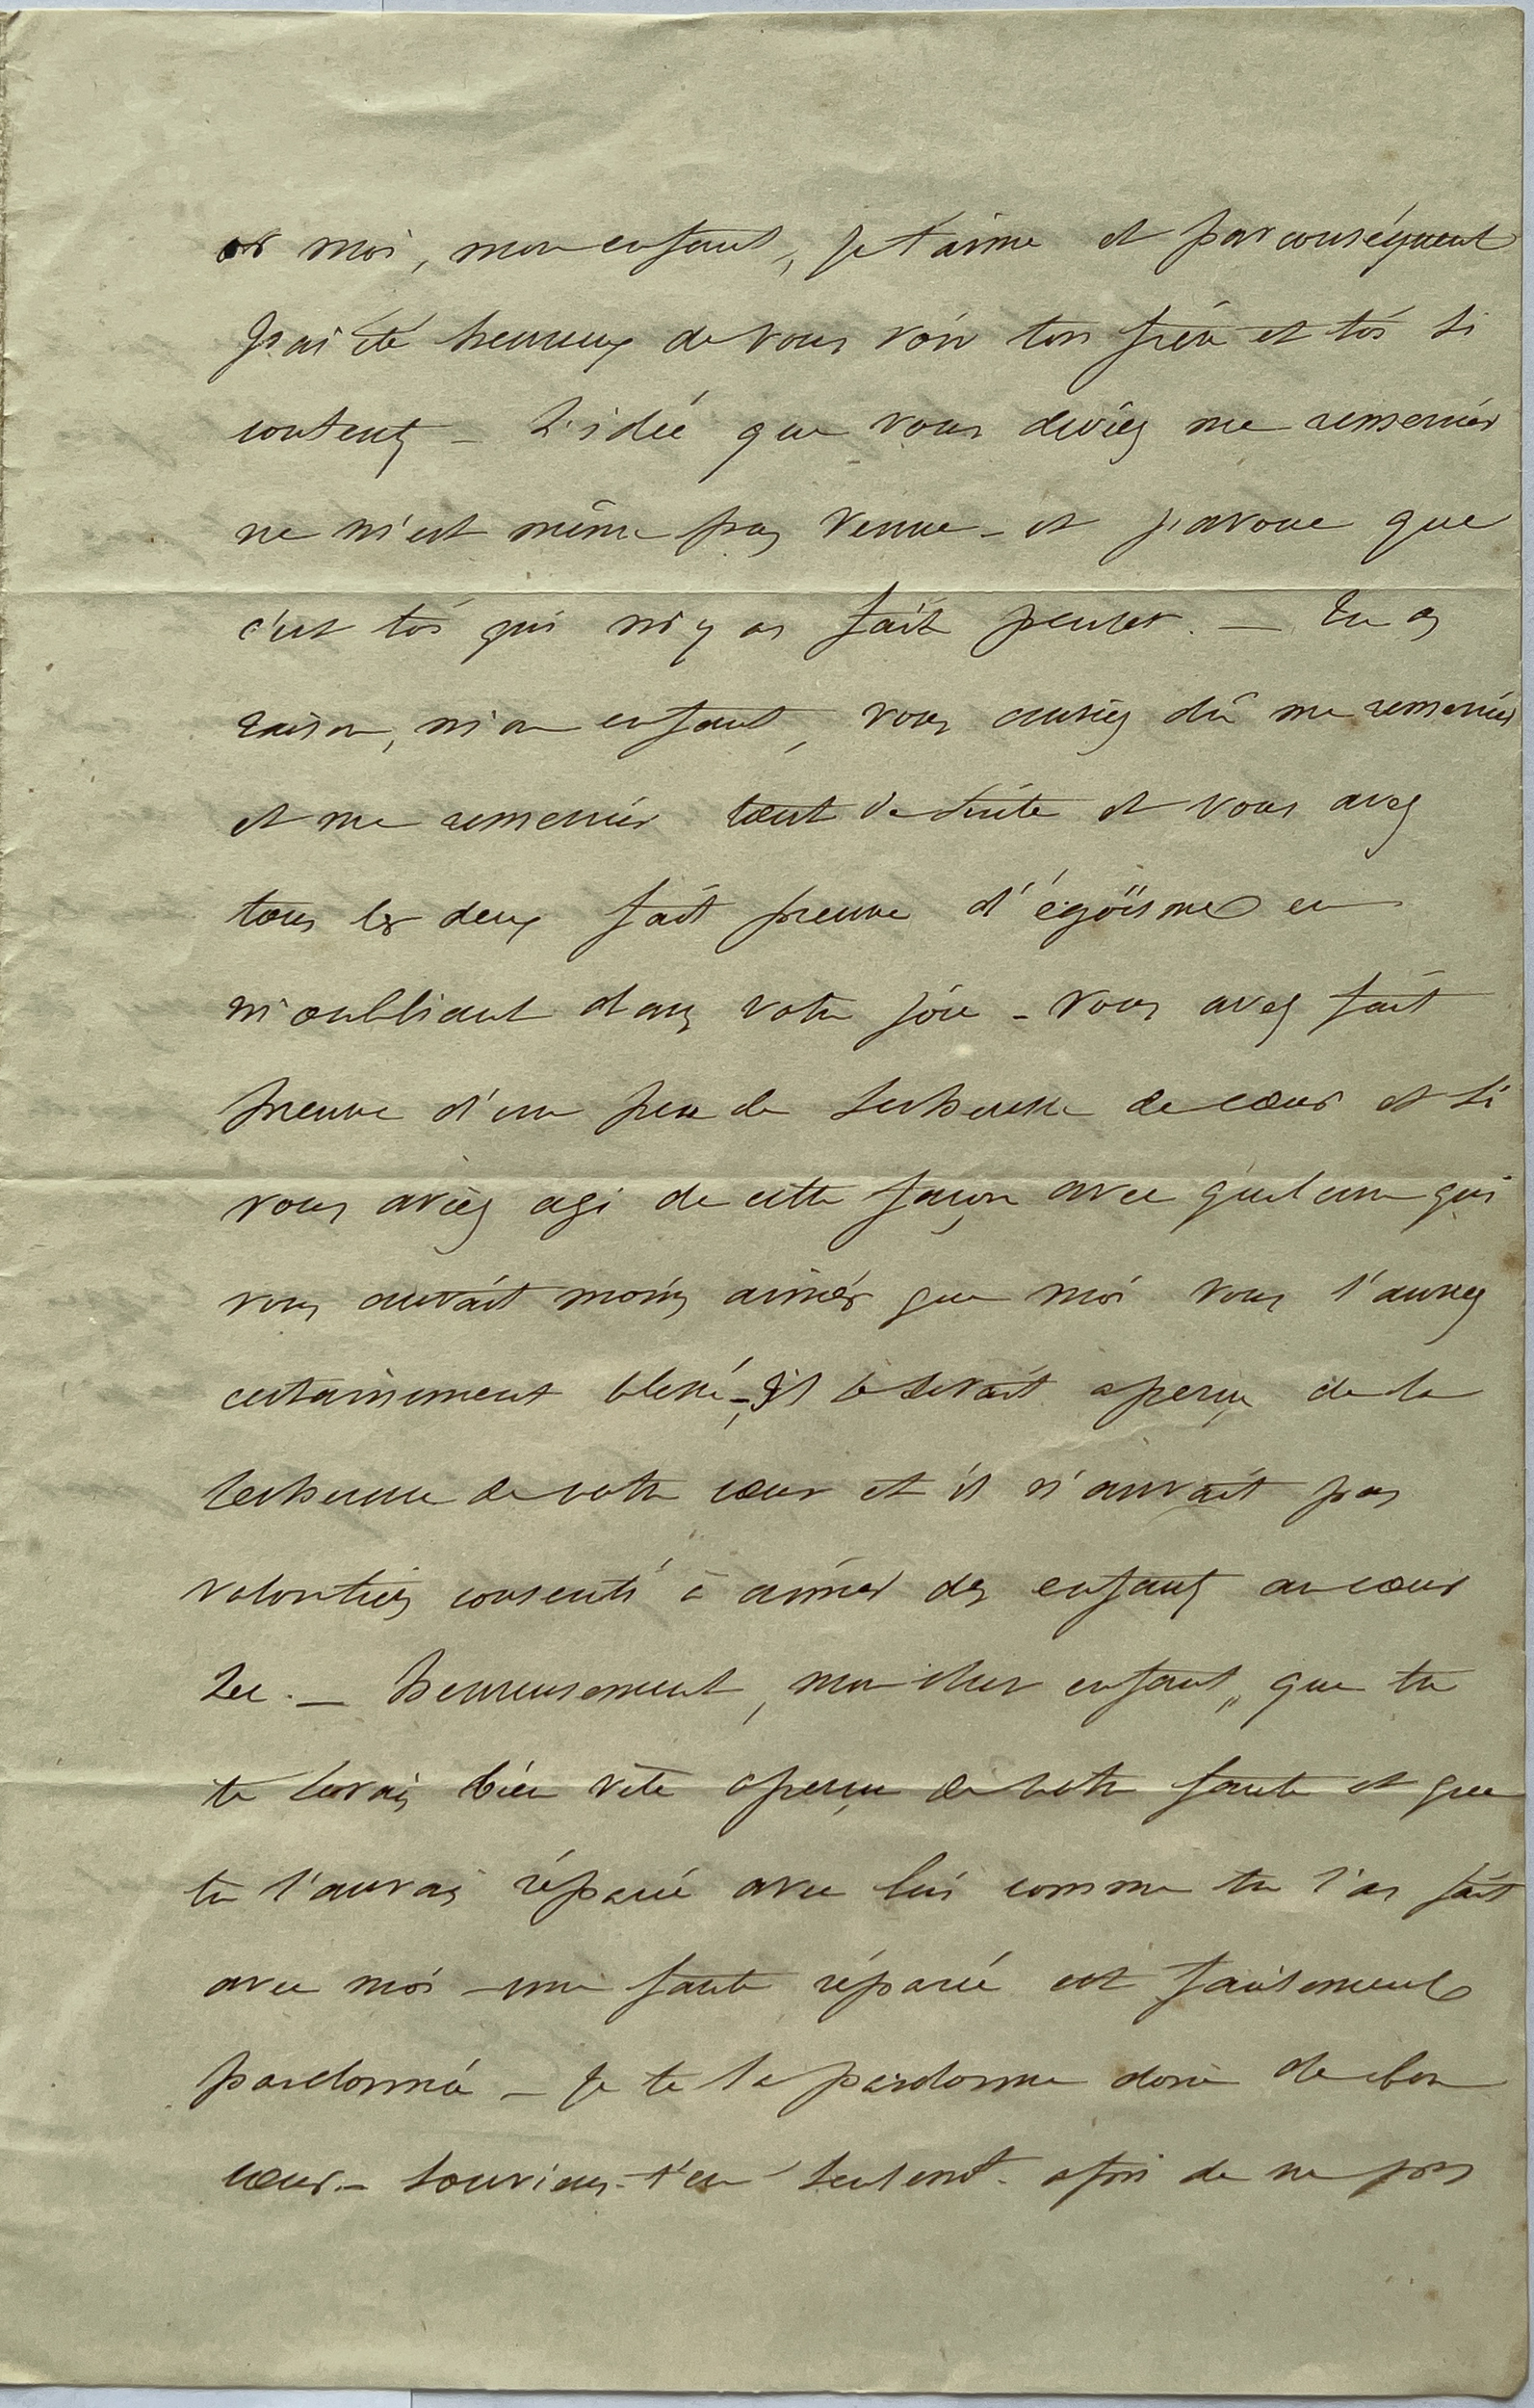 or moi, mon enfant, je t'aime et par conséquent
j'ai été heureux de vous voir ton frère et toi si
contents _ L'idée que vous deviez me remercier
ne m'est même pas venue _ et j'avoue que
c'est toi qui m'y as fait penser. _ Tu as
raison, mon enfant, vous auriez dû me remercier
et me remercier tout de suite et vous avez
tous les deux fait preuve d'égoïsme en
m'oubliant dans votre joie _ vous avez fait
preuve d'un peu de sécheresse de cœur et si
vous aviez agi de cette façon avec quelcun qui
vous aurait moins aimés que moi vous l'auriez
certainement blessé _ Il se serait aperçu de la
sécheresse de votre cœur et il n'aurait pas
volontiers consenti à aimer des enfants au cœur
sec. _ heureusement, mon cher enfant, que tu
te serais bien vite aperçu de votre faute et que
tu l'aurais réparée avec lui comme tu l'as fait
avec moi _ une faute réparée est facilement
pardonnée _ Je te la pardonne donc de bon
cœur. _ Souviens-t'en seulemt. afin de ne pas